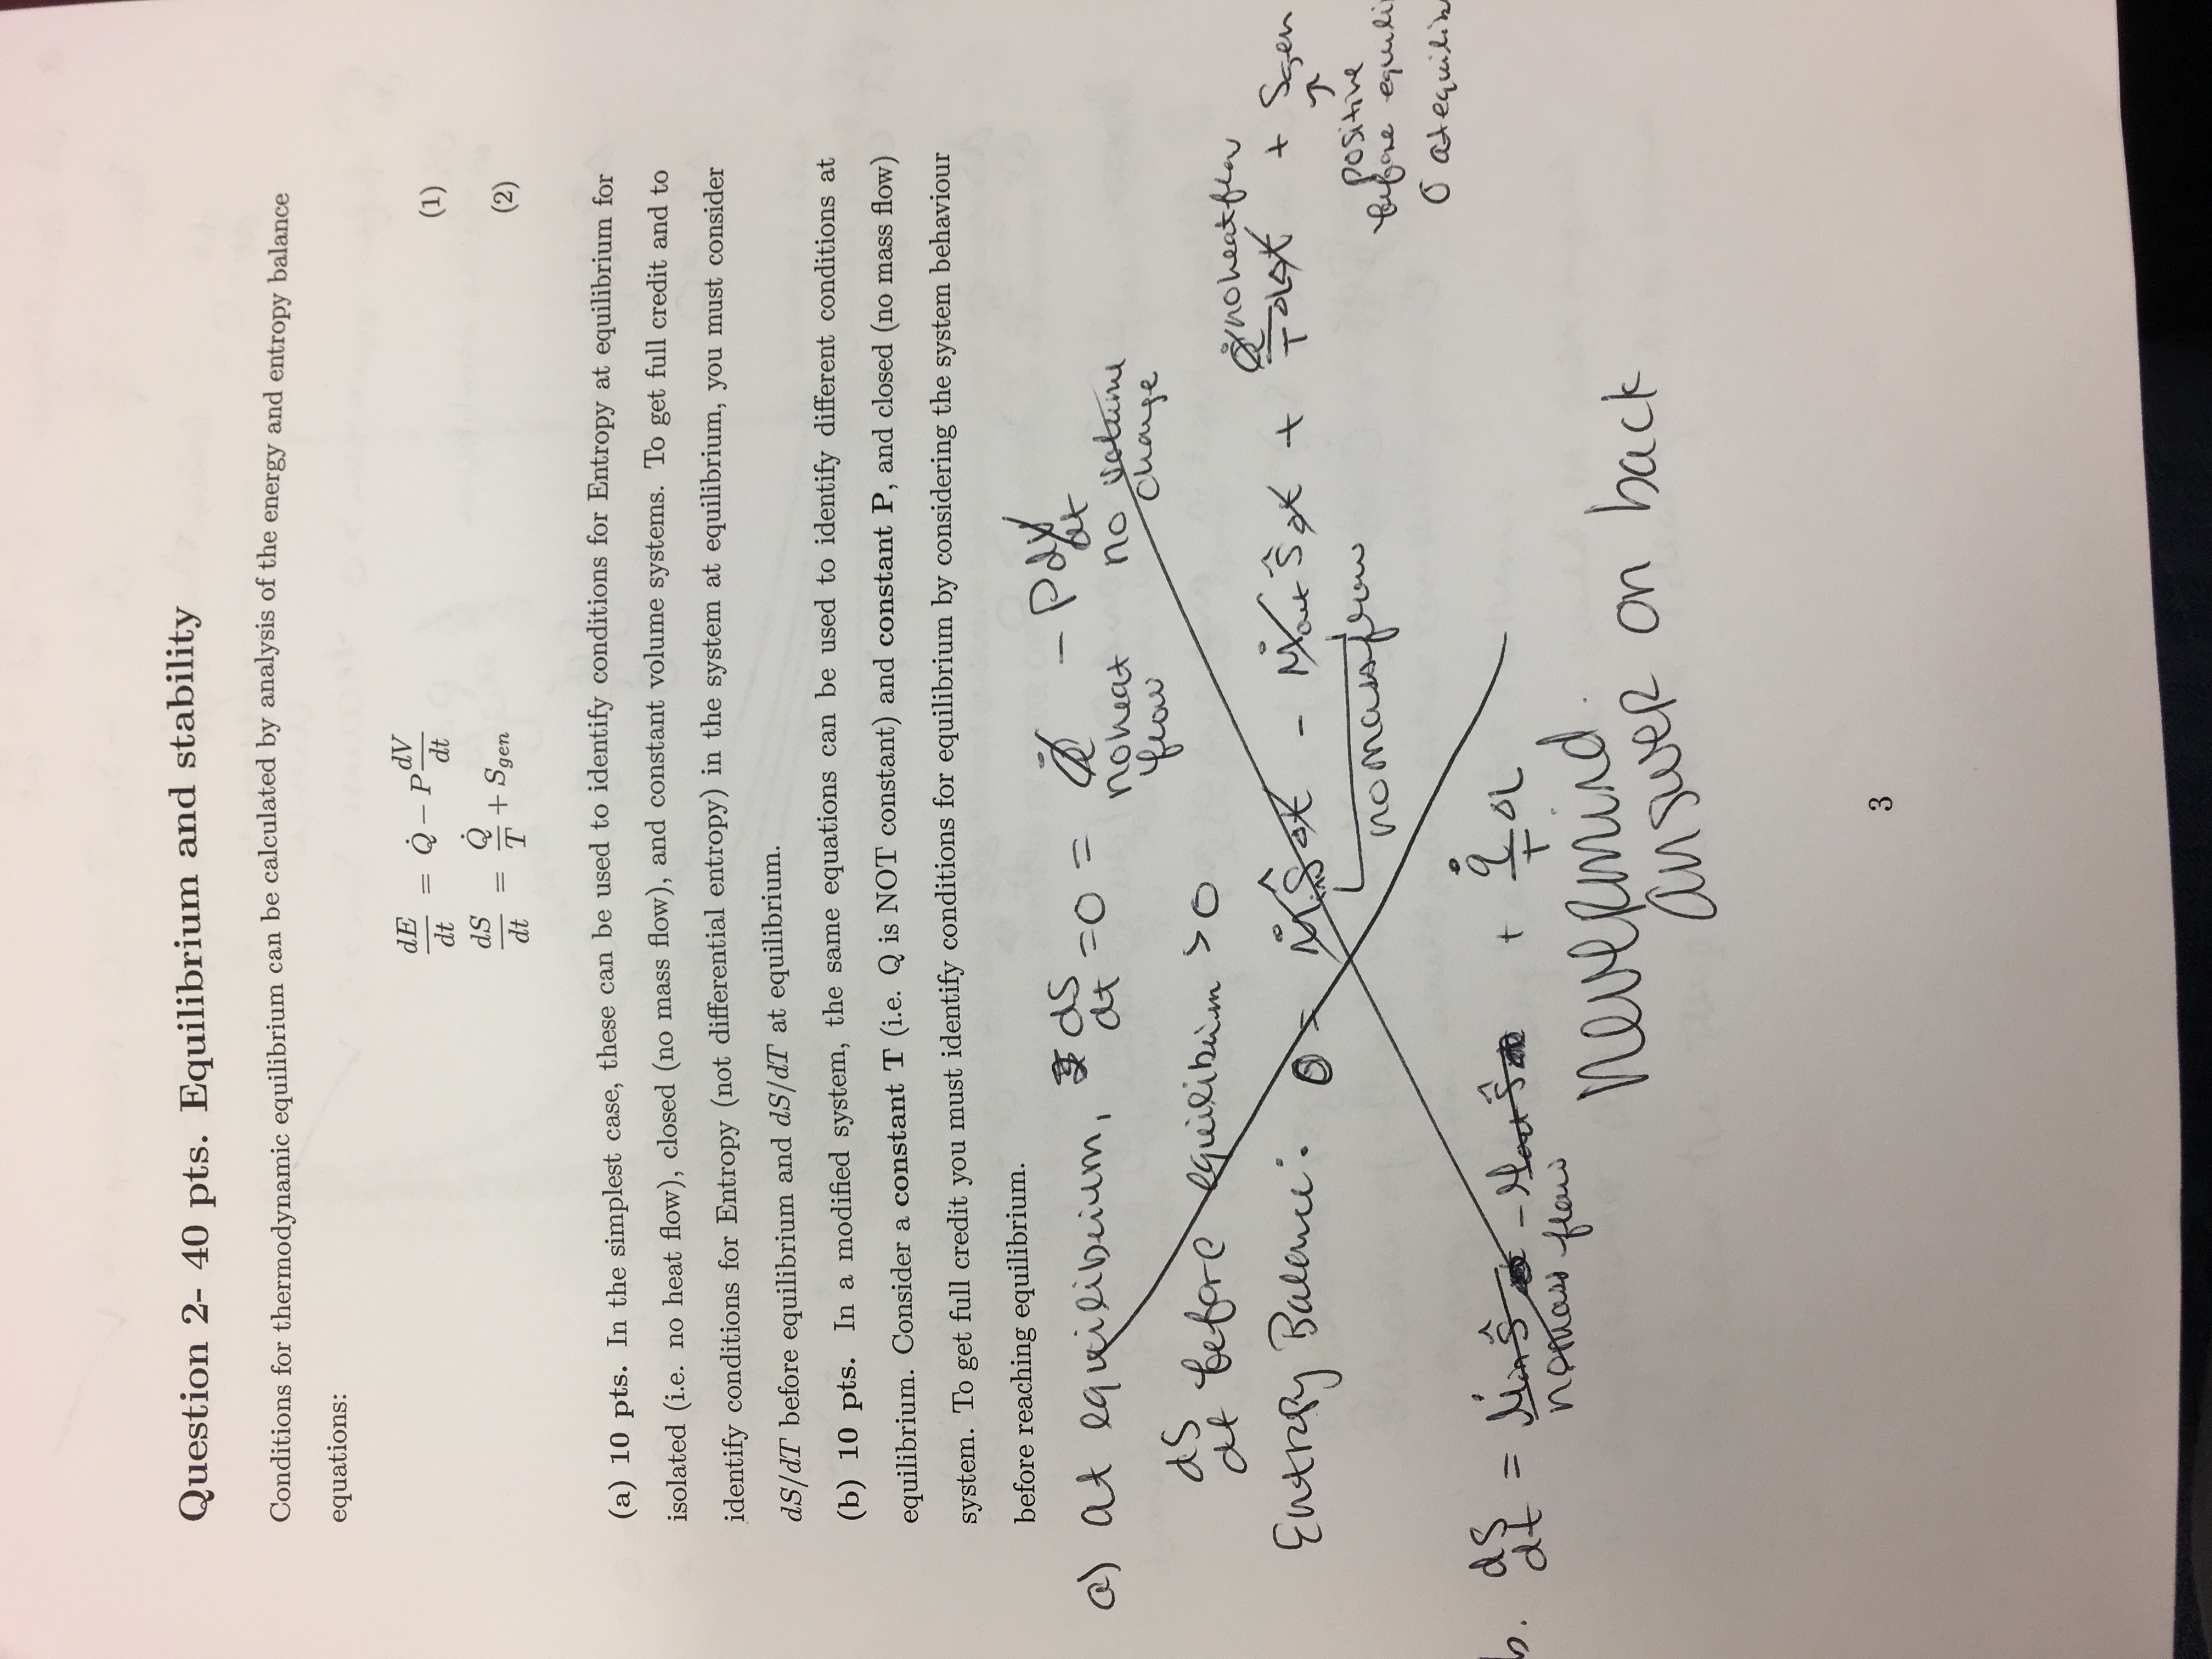 Question 2- 40 pts. Equilibrium and stability
Conditions for thermodynamic equilibrium can be calculated by analysis of the energy and entropy balance
equations:
dE/dt = Q̇ − P dV/dt (1)
dS/dt = Q̇/T + Sgen (2)
(a) 10 pts. In the simplest case, these can be used to identify conditions for Entropy at equilibrium for
isolated (i.e. no heat flow), closed (no mass flow), and constant volume systems. To get full credit and to
identify conditions for Entropy (not differential entropy) in the system at equilibrium, you must consider
dS/dT before equilibrium and dS/dT at equilibrium.
(b) 10 pts. In a modified system, the same equations can be used to identify different conditions at
equilibrium. Consider a constant T (i.e. Q is NOT constant) and constant P, and closed (no mass flow)
system. To get full credit you must identify conditions for equilibrium by considering the system behaviour
before reaching equilibrium.
a) at equilibrium, dS/dt = 0 = Q̇ − P dV/dt
no heat flow
no volume change
dS/dt before equilibrium > 0
Entropy Balance: 0 = ṀinŜΔt − ṀoutŜΔt + Q̇/T Δt + Sgen
no heat flow
no mass flow
positive
before equili
0 at equilib
b. dS/dt = ṀinŜ − ṀoutŜ + q̇/T
no mass flow
nevermind.
answer on back
3